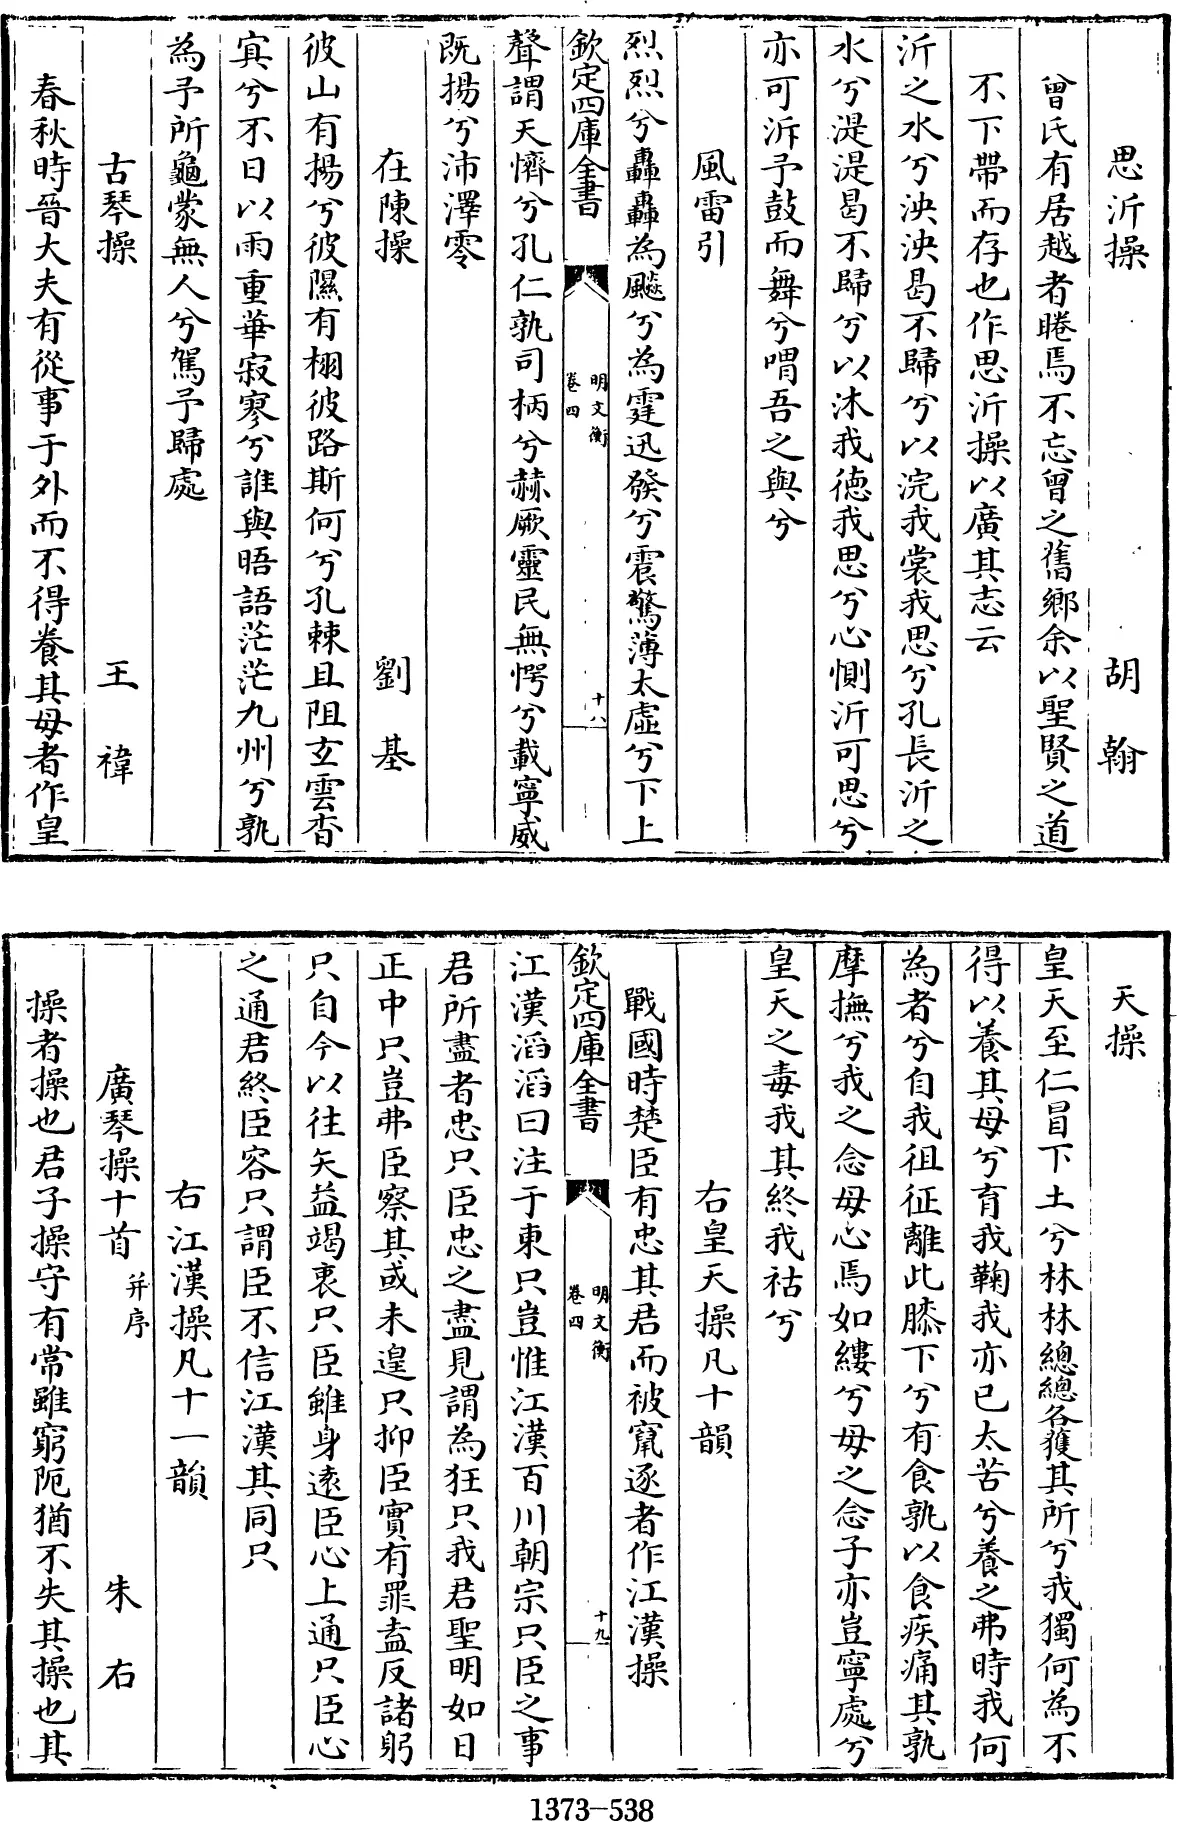 思沂操　胡翰
曾氏有居越者睠焉不忘曾之舊鄉余以聖賢之道
不下帶而存也作思沂操以廣其志云
沂之水兮泱泱曷不歸兮以浣我裳我思兮孔長沂之
水兮湜湜曷不歸兮以沐我德我思兮心惻沂可思兮
亦可泝予鼓而舞兮喟吾之與兮
風雷引
烈烈兮轟轟為飈兮為霆迅發兮震驚薄太虛兮下上
欽定四庫全書　明文衡卷四　十八
聲謂天懠兮孔仁孰司柄兮赫厥靈民無愕兮載寧威
既揚兮沛澤零
在陳操　劉基
彼山有楊兮彼隰有栩彼路斯何兮孔棘且阻玄雲杳
寘兮不日以雨重華寂寥兮誰與晤語茫茫九州兮孰
為予所龜蒙無人兮駕予歸處
古琴操　王禕
春秋時晉大夫有從事于外而不得養其母者作皇
天操
皇天至仁冒下土兮林林總總各獲其所兮我獨何為不
得以養其母兮育我鞠我亦已太苦兮養之弗時我何
為者兮自我徂征離此膝下兮有食孰以食疾痛其孰
摩撫兮我之念母心焉如縷兮母之念子亦豈寧處兮
皇天之毒我其終我祜兮
右皇天操凡十韻
戰國時楚臣有忠其君而被竄逐者作江漢操
欽定四庫全書　明文衡卷四　十九
江漢滔滔曰注于東只豈惟江漢百川朝宗只臣之事
君所盡者忠只臣忠之盡見謂為狂只我君聖明如日
正中只豈弗臣察其或未遑只抑臣實有罪盍反諸躬
只自今以往矢益竭衷只臣雖身遠臣心上通只臣心
之通君終臣容只謂臣不信江漢其同只
右江漢操凡十一韻
廣琴操十首并序　朱右
操者操也君子操守有常雖窮阨猶不失其操也其
1373-538